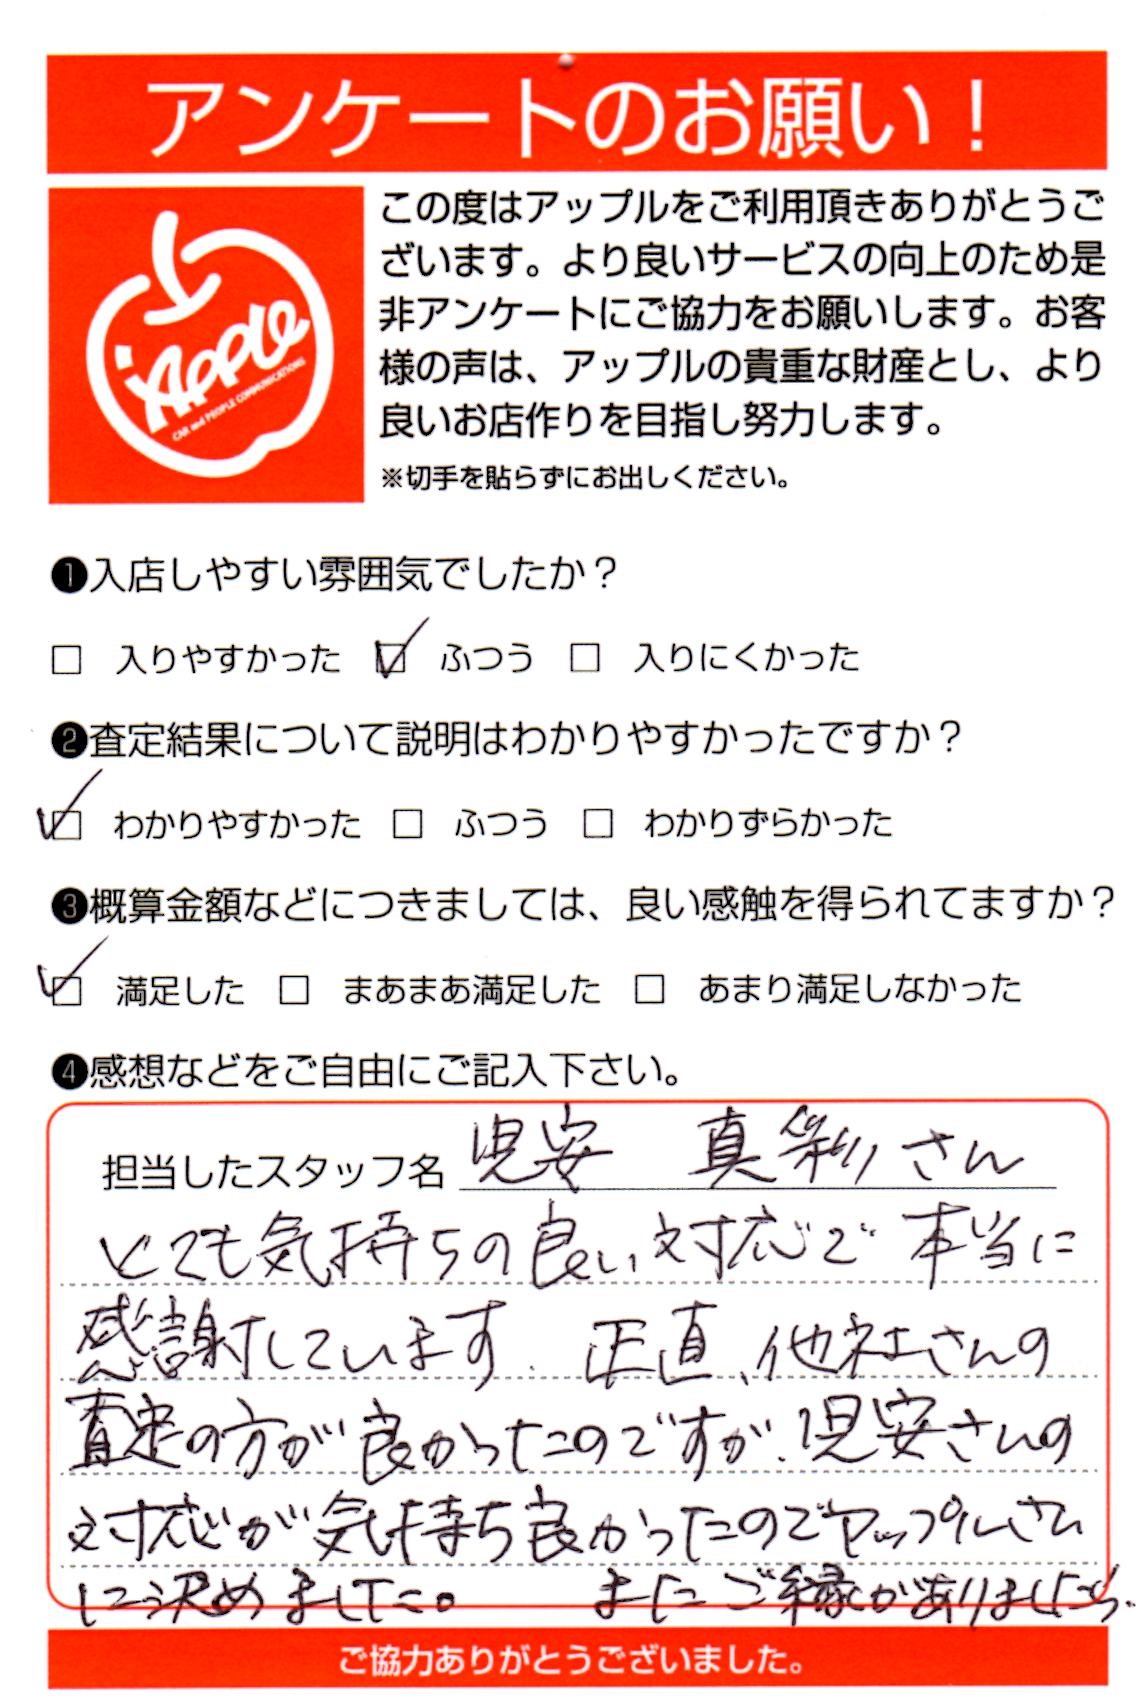 アンケートのお願い!
Apple
CAR and PEOPLE COMMUNICATIONS
この度はアップルをご利用頂きありがとうご
ざいます。より良いサービスの向上のため是
非アンケートにご協力をお願いします。お客
様の声は、アップルの貴重な財産とし、より
良いお店作りを目指し努力します。
※切手を貼らずにお出しください。
❶入店しやすい雰囲気でしたか?
□ 入りやすかった ☑ ふつう □ 入りにくかった
❷査定結果について説明はわかりやすかったですか?
☑ わかりやすかった □ ふつう □ わかりずらかった
❸概算金額などにつきましては、良い感触を得られてますか?
☑ 満足した □ まあまあ満足した □ あまり満足しなかった
❹感想などをご自由にご記入下さい。
担当したスタッフ名 児安 真彩さん
とても気持ちの良い対応で 本当に
感謝しています. 正直、他社さんの
査定の方が良かったのですが、児安さんの
対応が気持ち良かったのでアップルさん
に決めました。 またご縁がありましたら.
ご協力ありがとうございました。